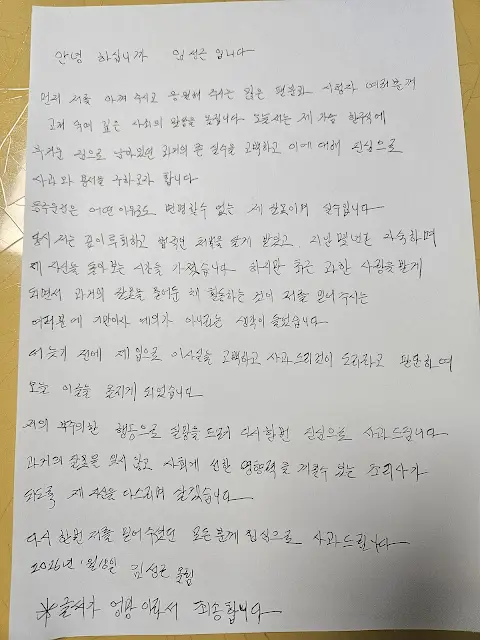 안녕 하십니까 임성근 입니다
먼저 저를 아껴 주시고 응원해 주시는 많은 팬분과 시청자 여러분께
고개 숙여 깊은 사죄의 말씀을 올립니다 오늘 저는 제 가슴 한구석에
무거운 짐으로 남아있던 과거의 큰 실수을 고백하고 이에 대해 진심으로
사과와 용서를 구하고자 합니다
음주운전은 어떤 이유로도 변명할수 없는 제 잘못이며 실수입니다
당시 저는 깊이 후회하고 법적인 처벌을 달게 받았고, 지난 몇년간 자숙하며
제 자신을 돌아보는 시간을 가졌습니다 하지만 최근 과한 사랑을 받게
되면서 과거의 잘못을 묻어둔 채 활동하는 것이 저를 믿어 주시는
여러분에 기만이자 예의가 아니라는 생각이 들었습니다
더 늦기 전에 제 입으로 이사실을 고백하고 사과드리는것이 도리라고 판단하여
오늘 이글을 올리게 되었습니다
저의 부주의한 행동으로 실망을 드려 다시한번 진심으로 사과드립니다
과거의 잘못을 잊지 않고 사회에 선한 영향력을 끼칠수 있는 조리사가
되도록 제 자신을 다스리며 살겠습니다
다시 한번 저를 믿어주셨던 모든분께 진심으로 사과드립니다
2026년 1월 일 올림
※글씨가 엉망이라서 죄송합니다